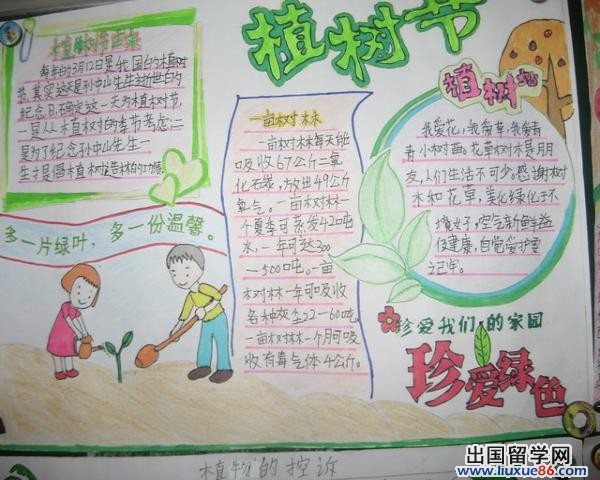 植树节
植树节由来
每年的3月12日是我国的植树
节,其实这是孙中山先生逝世的
纪念日,确定这一天为植树节,
一是从植树的季节考虑;二
是为了纪念孙中山先生一
生提倡植树造林的功绩
多一片绿叶,多一份温馨。
一亩树林
一亩树林每天能
吸收67公斤二氧
化石炭,放出49公斤
氧气。一亩树林一
个夏季可蒸发42吨
水,一年可达300
—500吨。一亩
树林一年可吸收
各种灰尘22—60吨
一亩树林一个月可吸
收有毒气体4公斤。
植树
我爱花,我爱草,我爱青
青小树苗。花草树木是朋
友,人们生活不可少。感谢树
木和花草,美化绿化环
境好,空气新鲜益
促健康,自觉爱护要
记牢。
珍爱我们的家园
珍爱绿色
植物的控诉
出国留学网
www.liuxue86.com